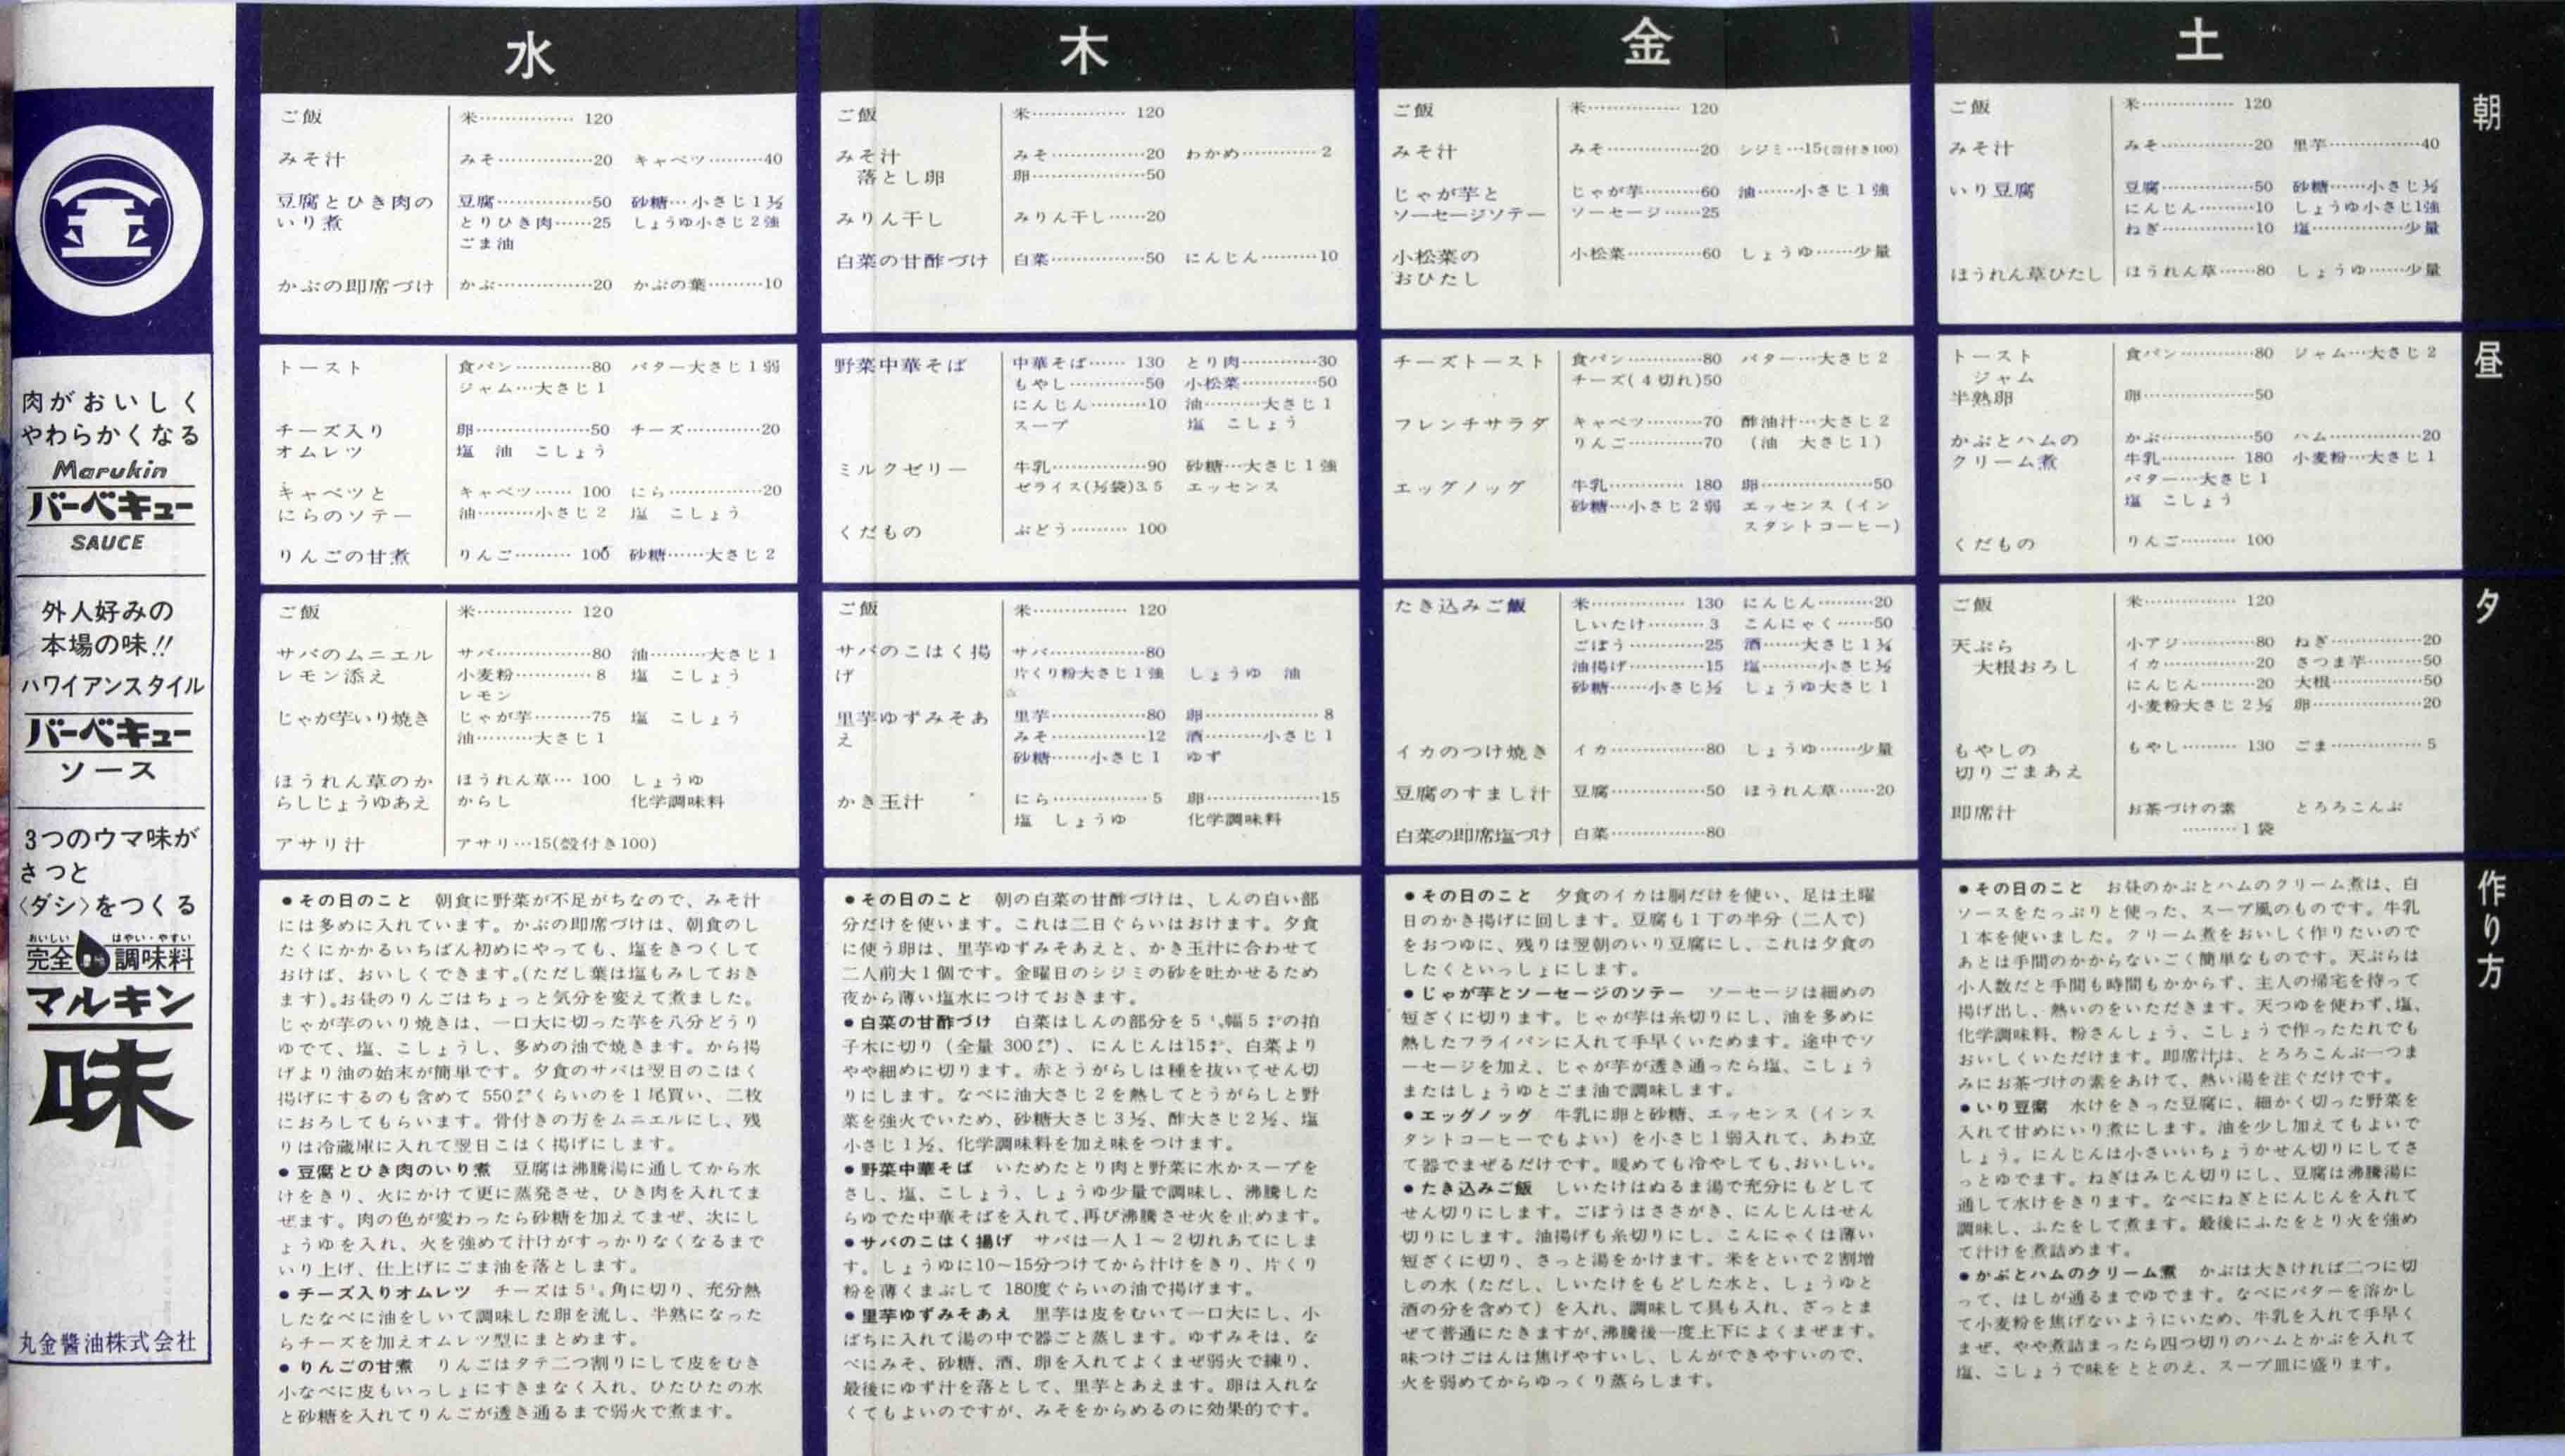 肉がおいしく
やわらかくなる
Marukin
バーベキュー
SAUCE
外人好みの
本場の味!!
ハワイアンスタイル
バーベキュー
ソース
3つのウマ味が
さっと
〈ダシ〉をつくる
おいしい はやい・やすい
完全 調味料
マルキン
味
丸金醬油株式会社
水
ご飯 米…………… 120
みそ汁 みそ……………20 キャベツ………40
豆腐とひき肉の 豆腐……………50 砂糖…小さじ1½
いり煮 とりひき肉……25 しょうゆ小さじ2強
ごま油
かぶの即席づけ かぶ……………20 かぶの葉………10
トースト 食パン…………80 バター大さじ1弱
ジャム…大さじ1
チーズ入り 卵………………50 チーズ…………20
オムレツ 塩 油 こしょう
キャベツと キャベツ…… 100 にら……………20
にらのソテー 油………小さじ2 塩 こしょう
りんごの甘煮 りんご……… 100 砂糖……大さじ2
ご飯 米…………… 120
サバのムニエル サバ……………80 油………大さじ1
レモン添え 小麦粉………… 8 塩 こしょう
レモン
じゃが芋いり焼き じゃが芋………75 塩 こしょう
油………大さじ1
ほうれん草のか ほうれん草… 100 しょうゆ
らしじょうゆあえ からし 化学調味料
アサリ汁 アサリ…15(殻付き100)
●その日のこと 朝食に野菜が不足がちなので、みそ汁
には多めに入れています。かぶの即席づけは、朝食のし
たくにかかるいちばん初めにやっても、塩をきつくして
おけば、おいしくできます。(ただし葉は塩もみしておき
ます)。お昼のりんごはちょっと気分を変えて煮ました。
じゃが芋のいり焼きは、一口大に切った芋を八分どうり
ゆでて、塩、こしょうし、多めの油で焼きます。から揚
げより油の始末が簡単です。夕食のサバは翌日のこはく
揚げにするのも含めて 550㌘くらいのを1尾買い、二枚
におろしてもらいます。骨付きの方をムニエルにし、残
りは冷蔵庫に入れて翌日こはく揚げにします。
●豆腐とひき肉のいり煮 豆腐は沸騰湯に通してから水
けをきり、火にかけて更に蒸発させ、ひき肉を入れてま
ぜます。肉の色が変わったら砂糖を加えてまぜ、次にし
ょうゆを入れ、火を強めて汁けがすっかりなくなるまで
いり上げ、仕上げにごま油を落とします。
●チーズ入りオムレツ チーズは5㍉角に切り、充分熱
したなべに油をしいて調味した卵を流し、半熟になった
らチーズを加えオムレツ型にまとめます。
●りんごの甘煮 りんごはタテ二つ割りにして皮をむき
小なべに皮もいっしょにすきまなく入れ、ひたひたの水
と砂糖を入れてりんごが透き通るまで弱火で煮ます。
木
ご飯 米…………… 120
みそ汁 みそ……………20 わかめ………… 2
落とし卵 卵………………50
みりん干し みりん干し……20
白菜の甘酢づけ 白菜……………50 にんじん………10
野菜中華そば 中華そば…… 130 とり肉…………30
もやし…………50 小松菜…………50
にんじん………10 油………大さじ1
スープ 塩 こしょう
ミルクゼリー 牛乳……………90 砂糖…大さじ1強
ゼライス(½袋)3.5 エッセンス
くだもの ぶどう……… 100
ご飯 米…………… 120
サバのこはく揚 サバ……………80
げ 片くり粉大さじ1強 しょうゆ 油
里芋ゆずみそあ 里芋……………80 卵……………… 8
え みそ……………12 酒………小さじ1
砂糖……小さじ1 ゆず
かき玉汁 にら…………… 5 卵………………15
塩 しょうゆ 化学調味料
●その日のこと 朝の白菜の甘酢づけは、しんの白い部
分だけを使います。これは二日ぐらいはおけます。夕食
に使う卵は、里芋ゆずみそあえと、かき玉汁に合わせて
二人前大1個です。金曜日のシジミの砂を吐かせるため
夜から薄い塩水につけておきます。
●白菜の甘酢づけ 白菜はしんの部分を5㌢、幅5㍉の拍
子木に切り(全量 300㌘)、にんじんは15㌘、白菜より
やや細めに切ります。赤とうがらしは種を抜いてせん切
りにします。なべに油大さじ2を熱してとうがらしと野
菜を強火でいため、砂糖大さじ3½、酢大さじ2½、塩
小さじ1½、化学調味料を加え味をつけます。
●野菜中華そば いためたとり肉と野菜に水かスープを
さし、塩、こしょう、しょうゆ少量で調味し、沸騰した
らゆでた中華そばを入れて、再び沸騰させ火を止めます。
●サバのこはく揚げ サバは一人1～2切れあてにしま
す。しょうゆに10～15分つけてから汁けをきり、片くり
粉を薄くまぶして 180度ぐらいの油で揚げます。
●里芋ゆずみそあえ 里芋は皮をむいて一口大にし、小
ばちに入れて湯の中で器ごと蒸します。ゆずみそは、な
べにみそ、砂糖、酒、卵を入れてよくまぜ弱火で練り、
最後にゆず汁を落として、里芋とあえます。卵は入れな
くてもよいのですが、みそをからめるのに効果的です。
金
ご飯 米…………… 120
みそ汁 みそ……………20 シジミ…15(殻付き100)
じゃが芋と じゃが芋………60 油……小さじ1強
ソーセージソテー ソーセージ……25
小松菜の 小松菜…………60 しょうゆ……少量
おひたし
チーズトースト 食パン…………80 バター…大さじ2
チーズ(4切れ)50
フレンチサラダ キャベツ………70 酢油汁…大さじ2
りんご…………70 (油 大さじ1)
エッグノッグ 牛乳………… 180 卵………………50
砂糖…小さじ2弱 エッセンス(イン
スタントコーヒー)
たき込みご飯 米…………… 130 にんじん………20
しいたけ……… 3 こんにゃく……50
ごぼう…………25 酒……大さじ1⅓
油揚げ…………15 塩………小さじ½
砂糖……小さじ½ しょうゆ大さじ1
イカのつけ焼き イカ……………80 しょうゆ……少量
豆腐のすまし汁 豆腐……………50 ほうれん草……20
白菜の即席塩づけ 白菜……………80
●その日のこと 夕食のイカは胴だけを使い、足は土曜
日のかき揚げに回します。豆腐も1丁の半分(二人で)
をおつゆに、残りは翌朝のいり豆腐にし、これは夕食の
したくといっしょにします。
●じゃが芋とソーセージのソテー ソーセージは細めの
短ざくに切ります。じゃが芋は糸切りにし、油を多めに
熱したフライパンに入れて手早くいためます。途中でソ
ーセージを加え、じゃが芋が透き通ったら塩、こしょう
またはしょうゆとごま油で調味します。
●エッグノッグ 牛乳に卵と砂糖、エッセンス(インス
タントコーヒーでもよい)を小さじ1弱入れて、あわ立
て器でまぜるだけです。暖めても冷やしても、おいしい。
●たき込みご飯 しいたけはぬるま湯で充分にもどして
せん切りにします。ごぼうはささがき、にんじんはせん
切りにします。油揚げも糸切りにし、こんにゃくは薄い
短ざくに切り、さっと湯をかけます。米をといで2割増
しの水(ただし、しいたけをもどした水と、しょうゆと
酒の分を含めて)を入れ、調味して具も入れ、ざっとま
ぜて普通にたきますが、沸騰後一度上下によくまぜます。
味つけごはんは焦げやすいし、しんができやすいので、
火を弱めてからゆっくり蒸らします。
土
ご飯 米…………… 120
みそ汁 みそ……………20 里芋……………40
いり豆腐 豆腐……………50 砂糖……小さじ½
にんじん………10 しょうゆ小さじ1強
ねぎ……………10 塩……………少量
ほうれん草ひたし ほうれん草……80 しょうゆ……少量
トースト 食パン…………80 ジャム…大さじ2
ジャム
半熟卵 卵………………50
かぶとハムの かぶ……………50 ハム……………20
クリーム煮 牛乳………… 180 小麦粉…大さじ1
バター…大さじ1
塩 こしょう
くだもの りんご……… 100
ご飯 米…………… 120
天ぷら 小アジ…………80 ねぎ……………20
大根おろし イカ……………20 さつま芋………50
にんじん………20 大根……………50
小麦粉大さじ2½ 卵………………20
もやしの もやし……… 130 ごま…………… 5
切りごまあえ
即席汁 お茶づけの素 とろろこんぶ
………1袋
●その日のこと お昼のかぶとハムのクリーム煮は、白
ソースをたっぷりと使った、スープ風のものです。牛乳
1本を使いました。クリーム煮をおいしく作りたいので
あとは手間のかからないごく簡単なものです。天ぷらは
小人数だと手間も時間もかからず、主人の帰宅を待って
揚げ出し、熱いのをいただきます。天つゆを使わず、塩、
化学調味料、粉さんしょう、こしょうで作ったたれでも
おいしくいただけます。即席汁は、とろろこんぶ一つま
みにお茶づけの素をあけて、熱い湯を注ぐだけです。
●いり豆腐 水けをきった豆腐に、細かく切った野菜を
入れて甘めにいり煮にします。油を少し加えてもよいで
しょう。にんじんは小さいいちょうかせん切りにしてさ
っとゆでます。ねぎはみじん切りにし、豆腐は沸騰湯に
通して水けをきります。なべにねぎとにんじんを入れて
調味し、ふたをして煮ます。最後にふたをとり火を強め
て汁けを煮詰めます。
●かぶとハムのクリーム煮 かぶは大きければ二つに切
って、はしが通るまでゆでます。なべにバターを溶かし
て小麦粉を焦げないようにいため、牛乳を入れて手早く
まぜ、やや煮詰まったら四つ切りのハムとかぶを入れて
塩、こしょうで味をととのえ、スープ皿に盛ります。
朝
昼
夕
作り方